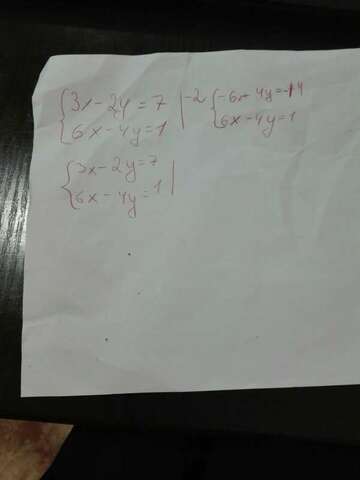 {3x - 2y = 7 | -2 {-6x - 4y = -14
{6x - 4y = 1 | {6x - 4y = 1
{3x - 2y = 7 |
{6x - 4y = 1 |